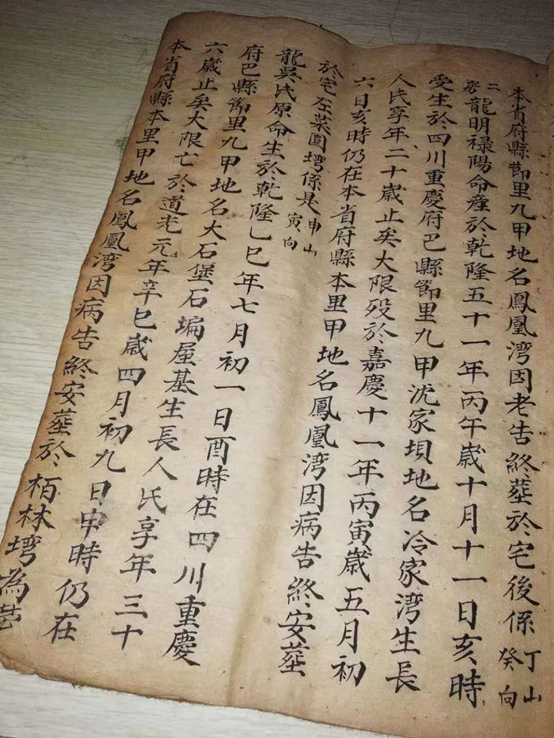 本省府縣節里九甲地名鳳凰湾因老告終塟於宅後係丁山癸向
二房龍明祿陽命產於乾隆五十一年丙午歲十月十一日亥時
受生於四川重慶府巴縣節里九甲沈家垻地名冷家湾生長
人氏享年二十歲止矣大限殁於嘉慶十一年丙寅歲五月初
六日亥時仍在本省府縣本里甲地名鳳凰湾因病告終安塟
於宅左菜園塆係是申山寅向
龍吳氏原命生於乾隆乙巳年七月初一日酉時在四川重慶
府巴縣節里九甲地名大石堡石塥屋基生長人氏享年三十
六歲止矣大限亡於道光元年辛巳歲四月初九日申時仍在
本省府縣本里甲地名鳳凰湾因病告終安塟於栢林塆為塋